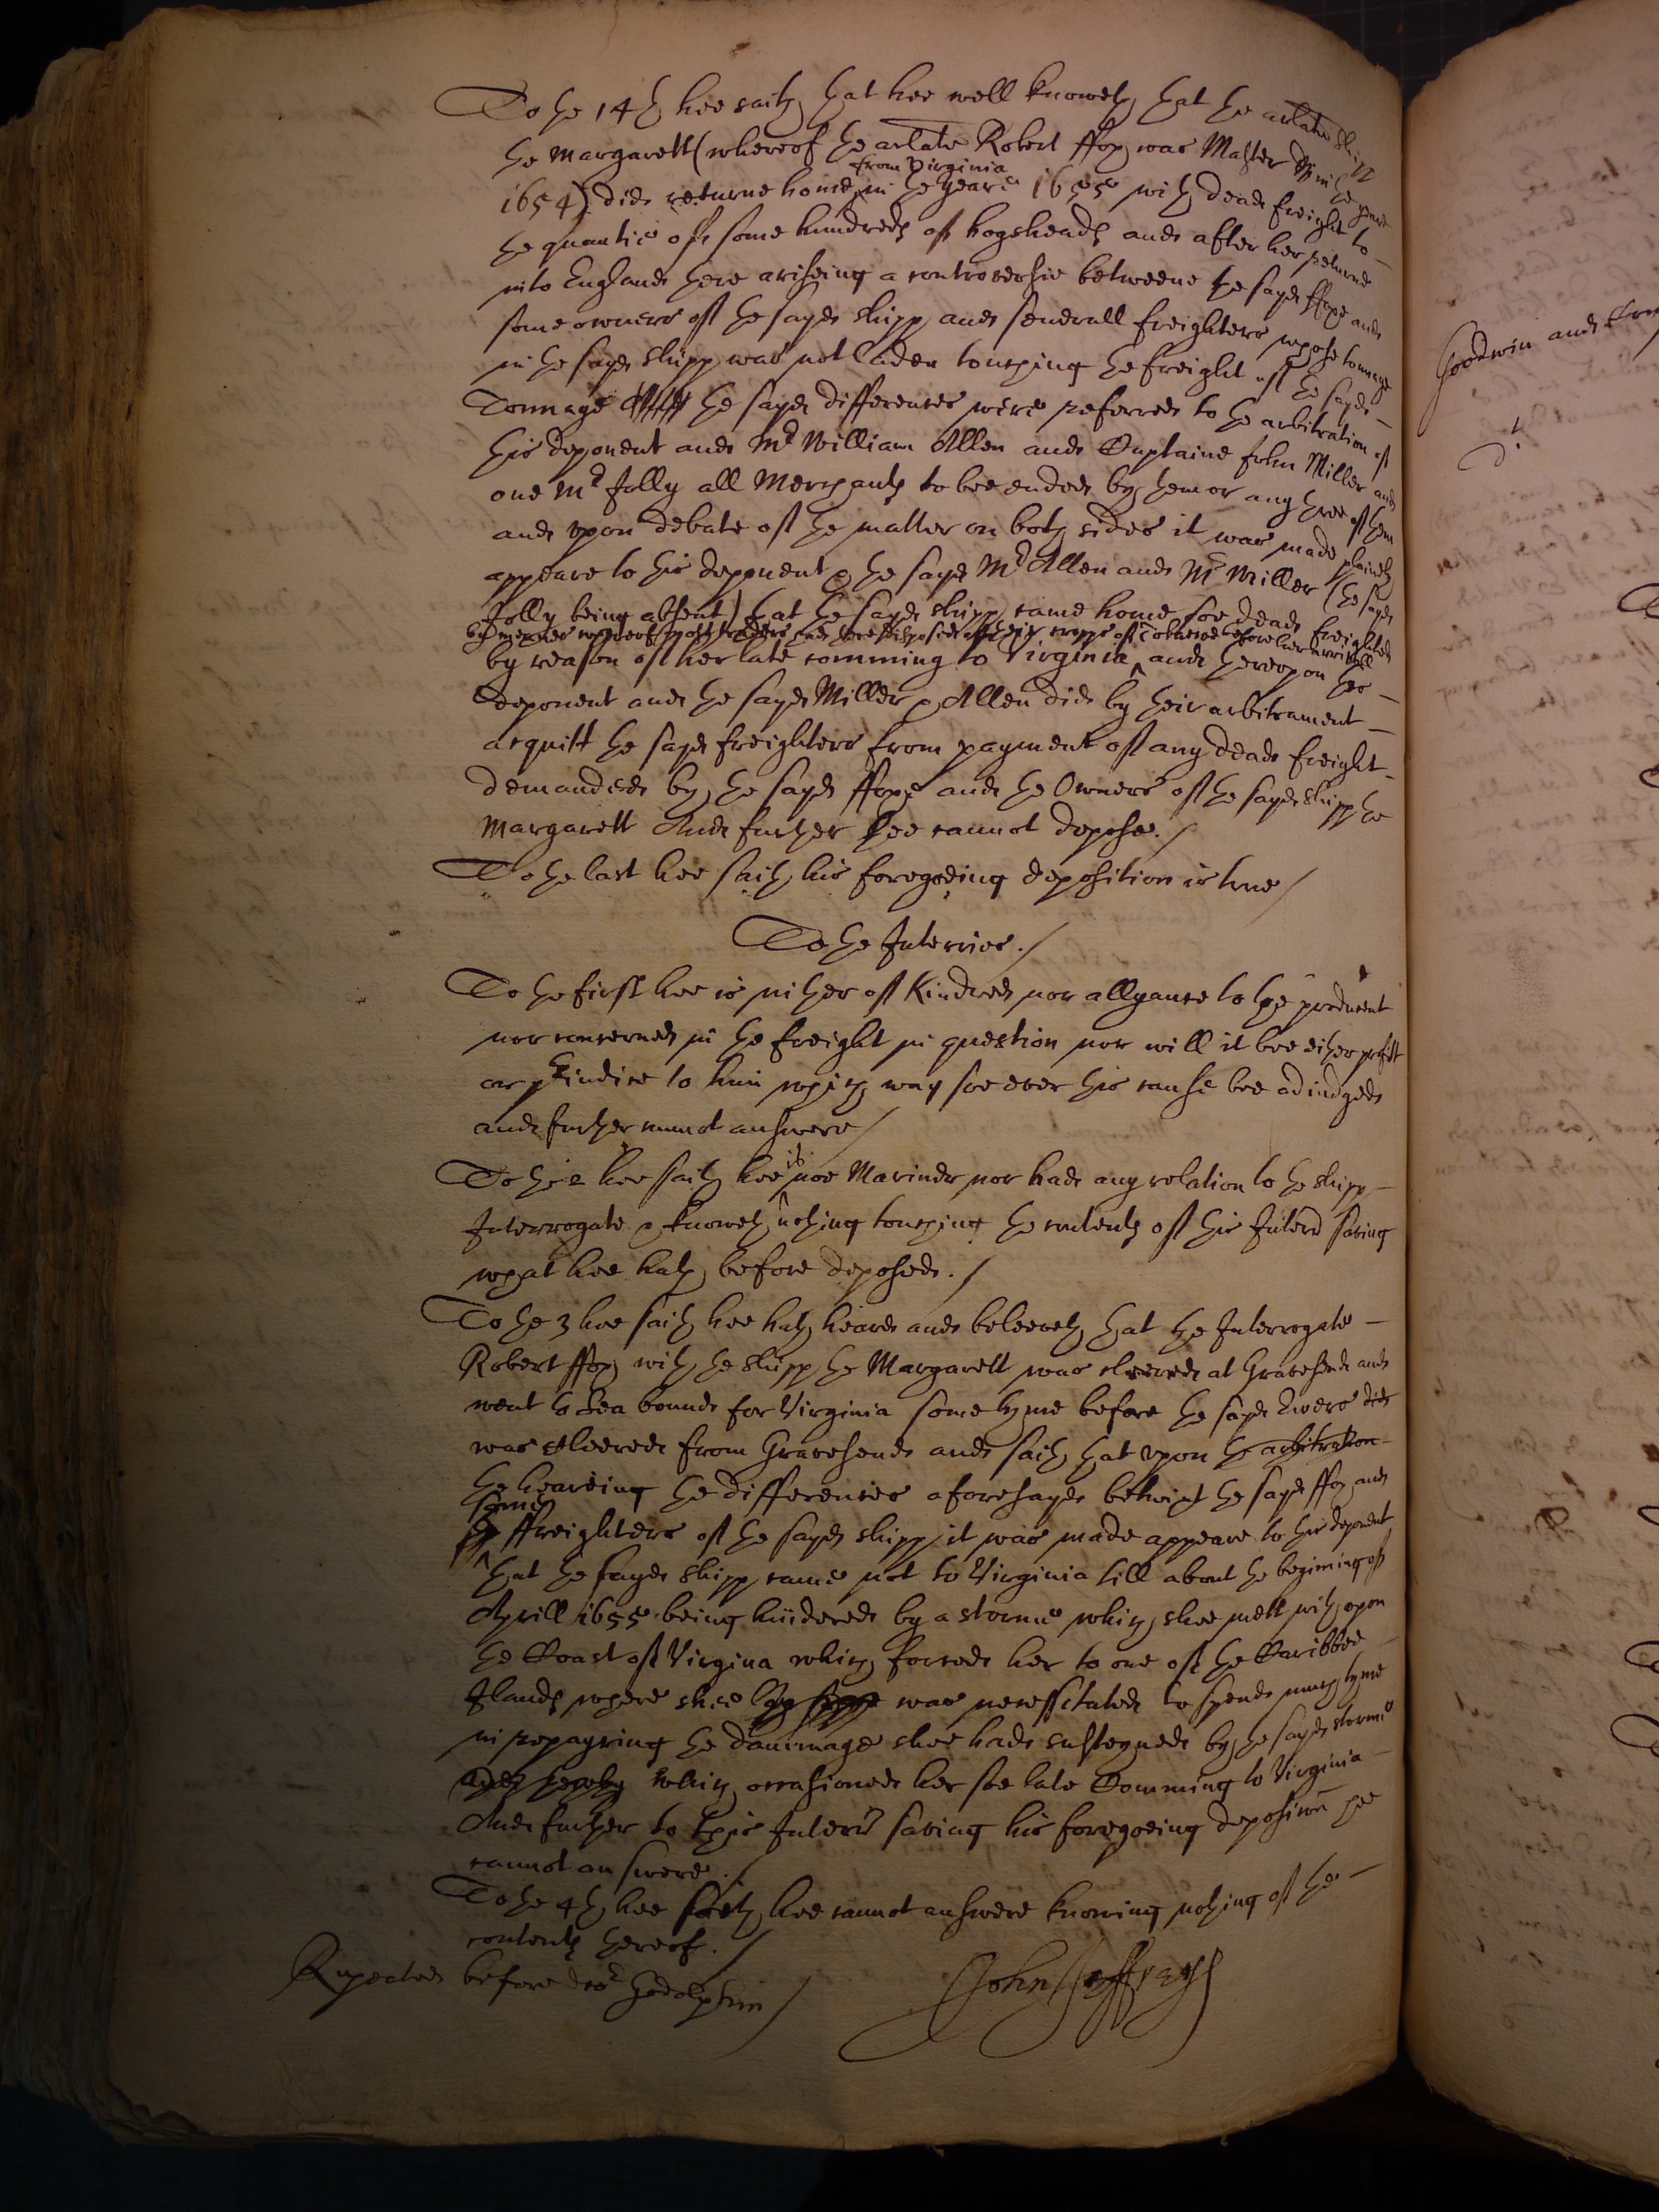 To the 14th hee saith that hee well knoweth that the arlate shipp
the Margarett (whereof the arlate Robert ffox was Master in the yeare
1654) did returne home from Virginia in the yeare 1655 with dead freight to
the quantie of some hundreds of hogsheads and after her returne
into England there ariseing a controversie betweene the sayd ffoxe and
some owners of the sayd shipp and severall freighters whose tonnage
in the sayd shipp was not laden touching the freight of the sayd
Tonnage the sayd differences were referred to the arbitration of
this deponent and Mr William Allen and Captaine John Miller and
one Mr Jolly all Merchants to bee ended by them or any three of them
and upon debate of the matter on both sides it was made plainely
appeare to this deponent & the sayd Mr Allen and Mr Miller (the sayd
Jolly being absent) that the sayd shipp came home soe dead freighted
by meanes whereof most traders had there disposed of their cropps of Tobaccoe before her arrivall
by reason of her late comming to Virginia and thereupon this
deponent and the sayd Miller & Allen did by their arbitrament
acquitt the sayd freighters from payment of any dead freight
demanded by the sayd ffoxe and the Owners of the sayd shipp the
Margarett And further hee cannot depose./
To the last hee saith his foregoeing deposition is true/
To the Interries./
To the first hee is nither of kindred nor allyance to the producent
nor concerned in the freight in question nor will it bee either profitt
or preiudice to him which way soe ever this cause bee adiudged
and further cannot answere/
To the 2 hee saith hee is noe Mariner nor had any relation to the shipp
Interrogate & knoweth nothing touching the contents of this Interrie saving
what hee hath before deposed./
To the 3 hee saith hee hath heard and beleeveth that the Interrogate
Robert ffox with the shipp the Margarett was cleered at Gravesend and
went to Sea bound for Virginia some tyme before the sayd Ewers did
was cleered from Gravesend and saith that upon the arbitration
the heareing the differences aforesayd betwixt the sayd ffox and
some
the ffreighters of the sayd shipp it was made appeare to this deponent
that the sayd shipp came not to Virginia till about the begining of
Aprill 1655 being hindered by a storme which shee mett with upon
the Coast of Virgina which forced her to one of the Caribbee
Ilands where shee was necessitated to spend much tyme
in repayring the dammage shee had susteyned by the sayd storme
and thereby which occasioned her soe late Comming to Virginia
And further to this Interrie saving his foregoeing deposition hee
cannot answere./
To the 4th hee saith hee cannot answere knowing nothing of the
contents thereof./
Repeated before doctor Godolphin/
John Jeffreys
Goodwin and